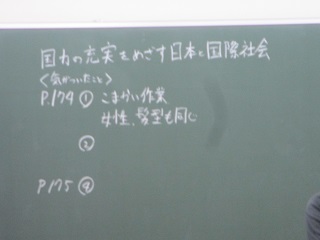 国力の充実をめざす日本と国際社会
<気がついたこと>
P.174 ① こまかい作業
女性、髪型も同じ
②
P175 ④